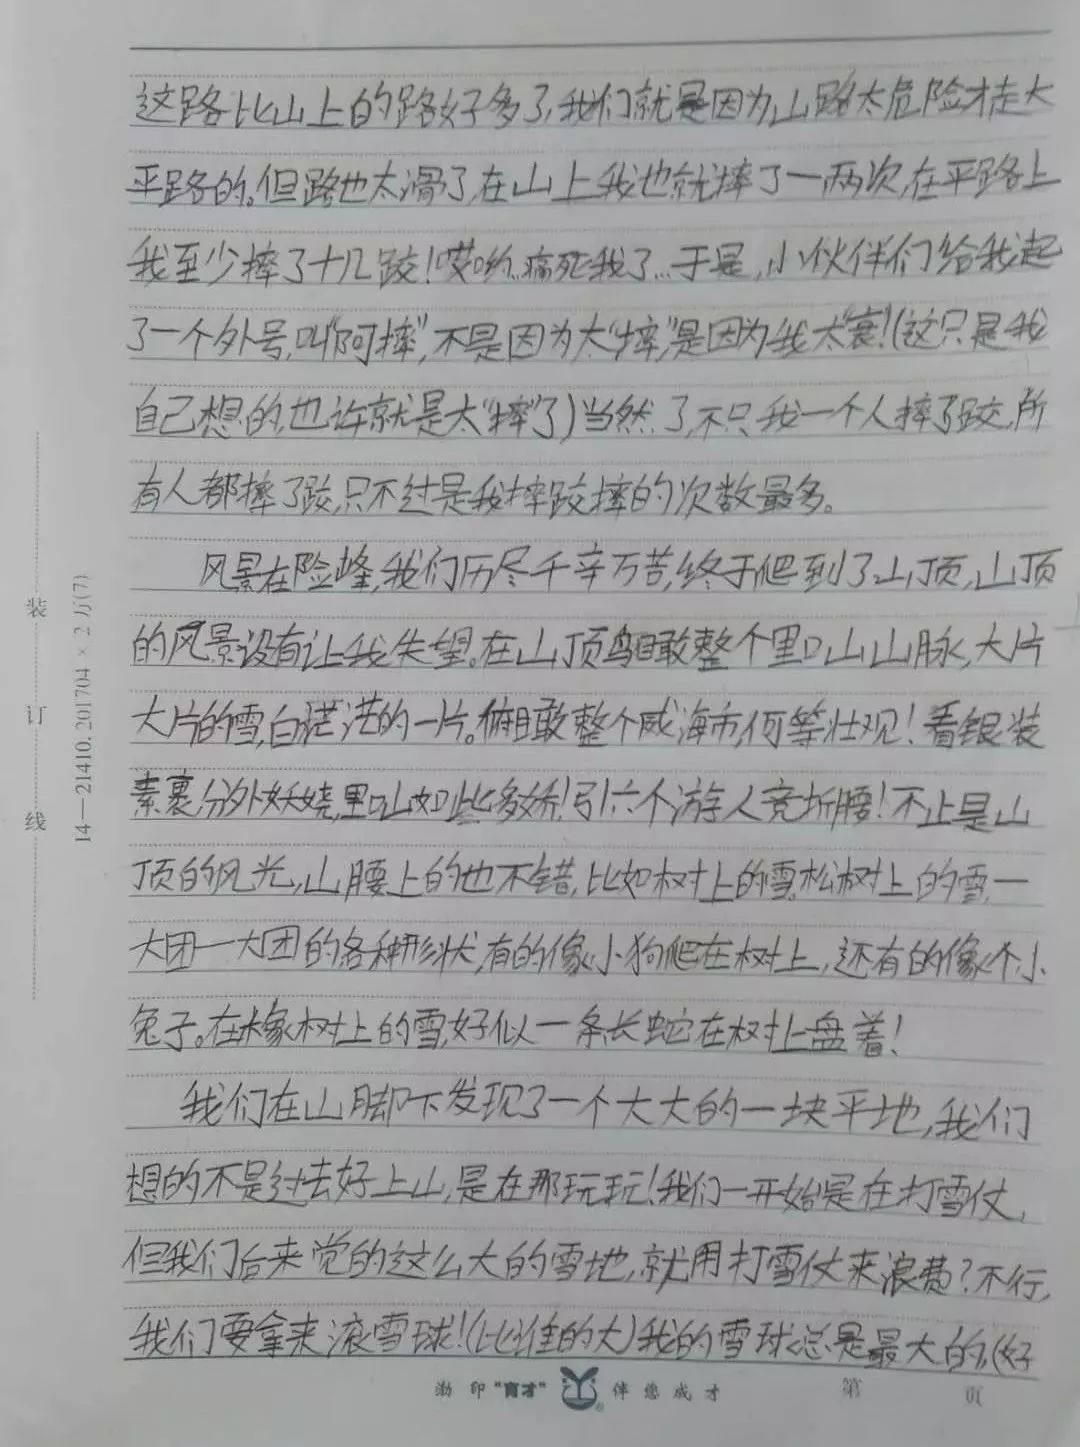 这路比山上的路好多了,我们就是因为山路太危险才走大
平路的。但路也太滑了,在山上我也就摔了一两次,在平路上
我至少摔了十几跤!哎哟痛死我了…于是,小伙伴们给我起
了一个外号,叫"阿摔",不是因为太"摔",是因为我太"衰"!(这只是我
自己想的,也许就是太"摔"了)当然了,不只我一个人摔了跤,所
有人都摔了跤,只不过是我摔跤摔的次数最多。
风景在险峰,我们历尽千辛万苦,终于爬到了山顶,山顶
的风景没有让我失望。在山顶鸟瞰整个里口山山脉,大片
大片的雪,白茫茫的一片。俯瞰整个威海市,何等壮观!看银装
素裹分外妖娆,里口山如此多娇!引六个游人竞折腰!不止是山
顶的风光,山腰上的也不错,比如树上的雪,松树上的雪,一
大团一大团的各种形状,有的像小狗爬在树上,还有的像个小
兔子。在橡树上的雪,好似一条长蛇在树上盘着!
我们在山脚下发现了一个大大的一块平地,我们
想的不是过去好上山,是在那玩玩!我们一开始是在打雪仗,
但我们后来觉的这么大的雪地,就用打雪仗来浪费?不行,
我们要拿来滚雪球!(比谁的大)我的雪球总是最大的,(好
装
订
线
14—21410.201704×2万(7)
渤印"育才" 伴您成才 第 页